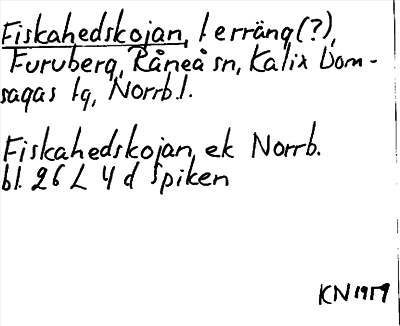 Fiskahedskojan, terräng(?),
Furuberg, Råneå sn, Kalix Dom-
sagas tg, Norrb.l.
Fiskahedskojan, ek Norrb.
bl. 26 L 4 d Spiken
KN 1959